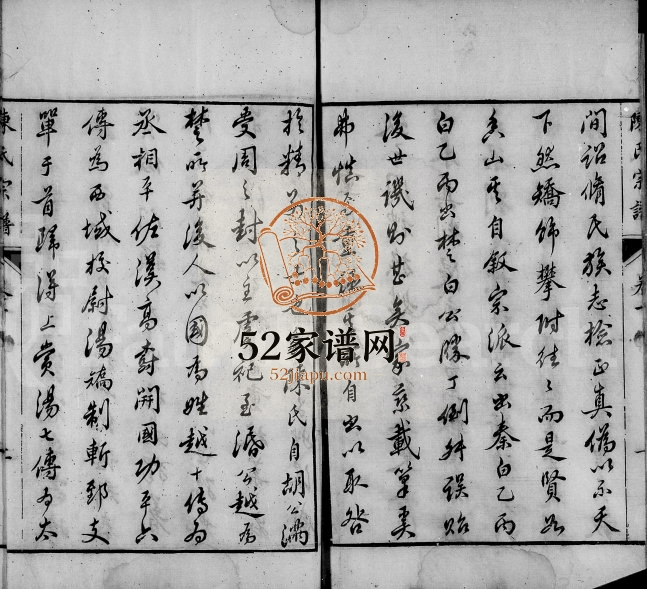 陳氏宗譜
卷一
間詔脩氏族志檢正真偽以示天
下然矯飾攀附往〻而是賢如
香山其自叙宗派云出秦白乙丙
白乙丙出楚白公勝丁倒舛誤貽
後世譏則甚矣家慈載筆奚
弗慎
自出以取咎
於精
陳氏自胡公滿
受周之封以主虞祀至湣公越為
楚所并後人以國為姓越十傳為
丞相平佐漢高封開國功平六
傳為西域校尉湯矯制斬郅支
單于首歸得上賞湯七傳為太
陳氏宗譜
52家谱网
52jiapu.com